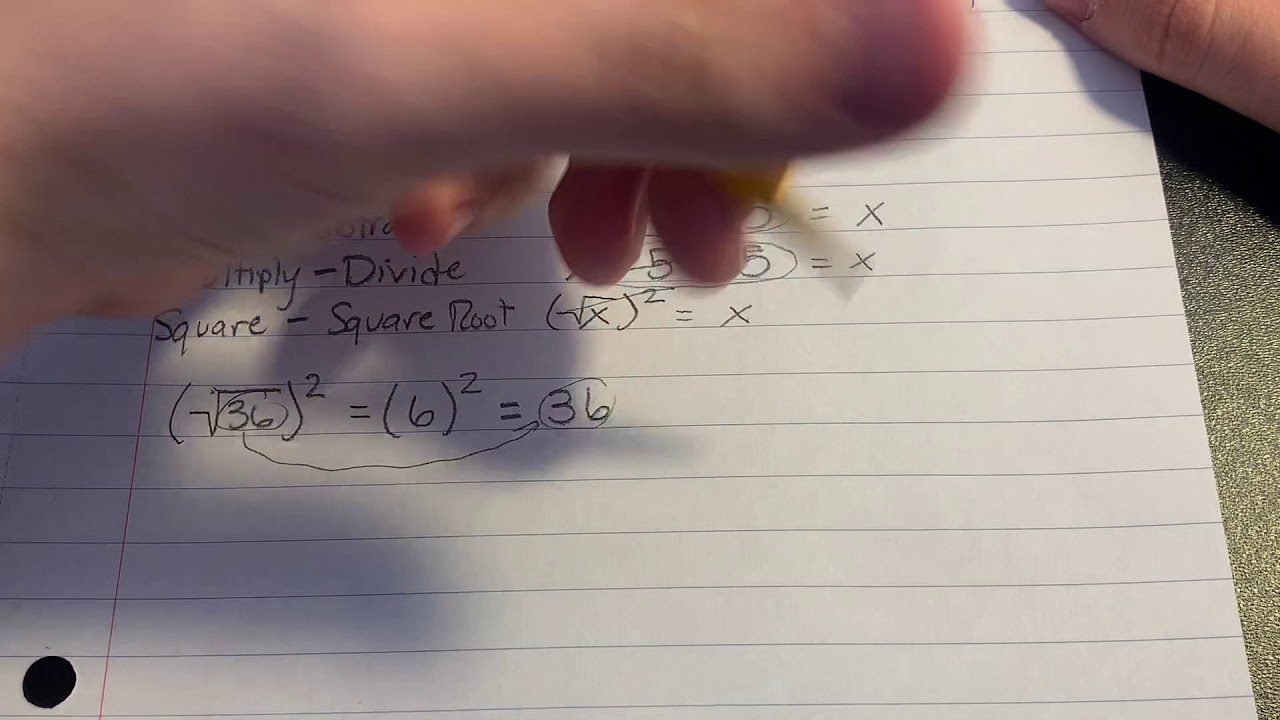 = x
- Divide 5 5) = x
Square - Square Root (√x)² = x
(√36)² = (6)² = 36